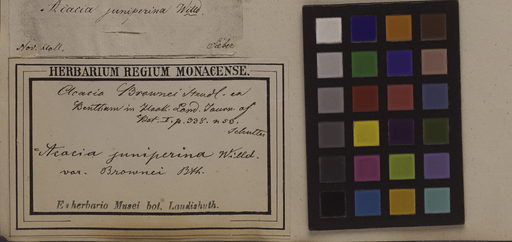 Acacia juniperina Willd.
Nov. Holl. Sieber
HERBARIUM REGIUM MONACENSE.
Acacia Brownei Steud. ex
Bentham in Hook. Lond. Journ. of
Bot. I. p. 338. n. 56.
Acacia juniperina Willd.
var. Brownei Bth.
Ex herbario Musei bot. Landishuth.